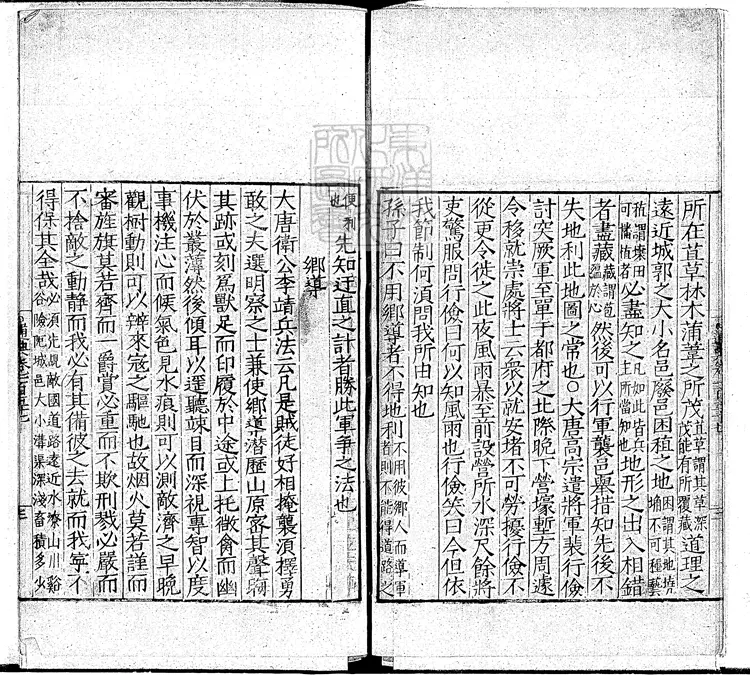 所在苴草林木蒲葦之所茂苴草謂其草深茂能有所覆藏道理之
遠近城郭之大小名邑廢邑困殖之地
必盡知之凡如此皆兵主所當知也地形之出入相錯
者盡藏之藏謂苞蘊於心然後可以行軍襲邑舉措知先後不
失地利此地圖之常也○大唐高宗遣將軍裴行儉
討突厥軍至單于都府之北際晚下營壕塹方周遽
令移就崇處將士云衆以就安堵不可勞擾行儉不
從更令徙之此夜風雨暴至前設營所水深尺餘將
吏驚服問行儉曰何以知風雨也行儉笑曰今但依
我節制何須問我所由知也
孫子曰不用鄉導者不得地利不用彼鄉人而導軍者則不能得道路之
便利也先知迂直之計者勝此軍爭之法也
鄉導
大唐衛公李靖兵法云凡是賊徒好相掩襲須擇勇
敢之夫選明察之士兼使鄉導潛歷山原密其聲晦
其跡或刻爲獸足而印履於中途或上托微禽而幽
伏於叢薄然後傾耳以遥聽竦目而深視專智以度
事機注心而候氣色見水痕則可以測敵濟之早晚
觀樹動則可以辨來寇之驅馳也故烟火莫若謹而
審旌旗莫若齊而一爵賞必重而不欺刑戮必嚴而
不捨敵之動靜而我必有其備彼之去就而我寧不
得保其全哉必須先覘敵國道路遠近水療山川谿谷險阨城邑大小溝渠深淺畜積多少